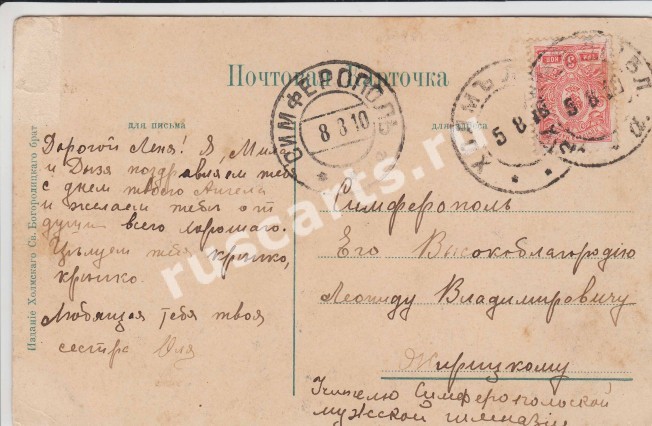 Почтовая Карточка
для письма
для адреса
Дорогой Леня! Я, Миша
и Дызя поздравляем тебя
с днем твоего Ангела
и желаем тебѣ от
души всего хорошаго.
Цѣлуем тебя крѣпко,
крѣпко.
Любящая тебя твоя
сестра Оля
Симферополь
Его Высокоблагородію
Леониду Владимировичу
Жирицкому
Учителю Симферопольской
мужской гимназіи
СИМФЕРОПОЛЬ
8 8 10
ХОЛМЪ ЛЮБЛ.
5 8 10
5 8 10
3 КОП
Изданіе Холмскаго Св. Богородицкаго брат
ruscarts.ru